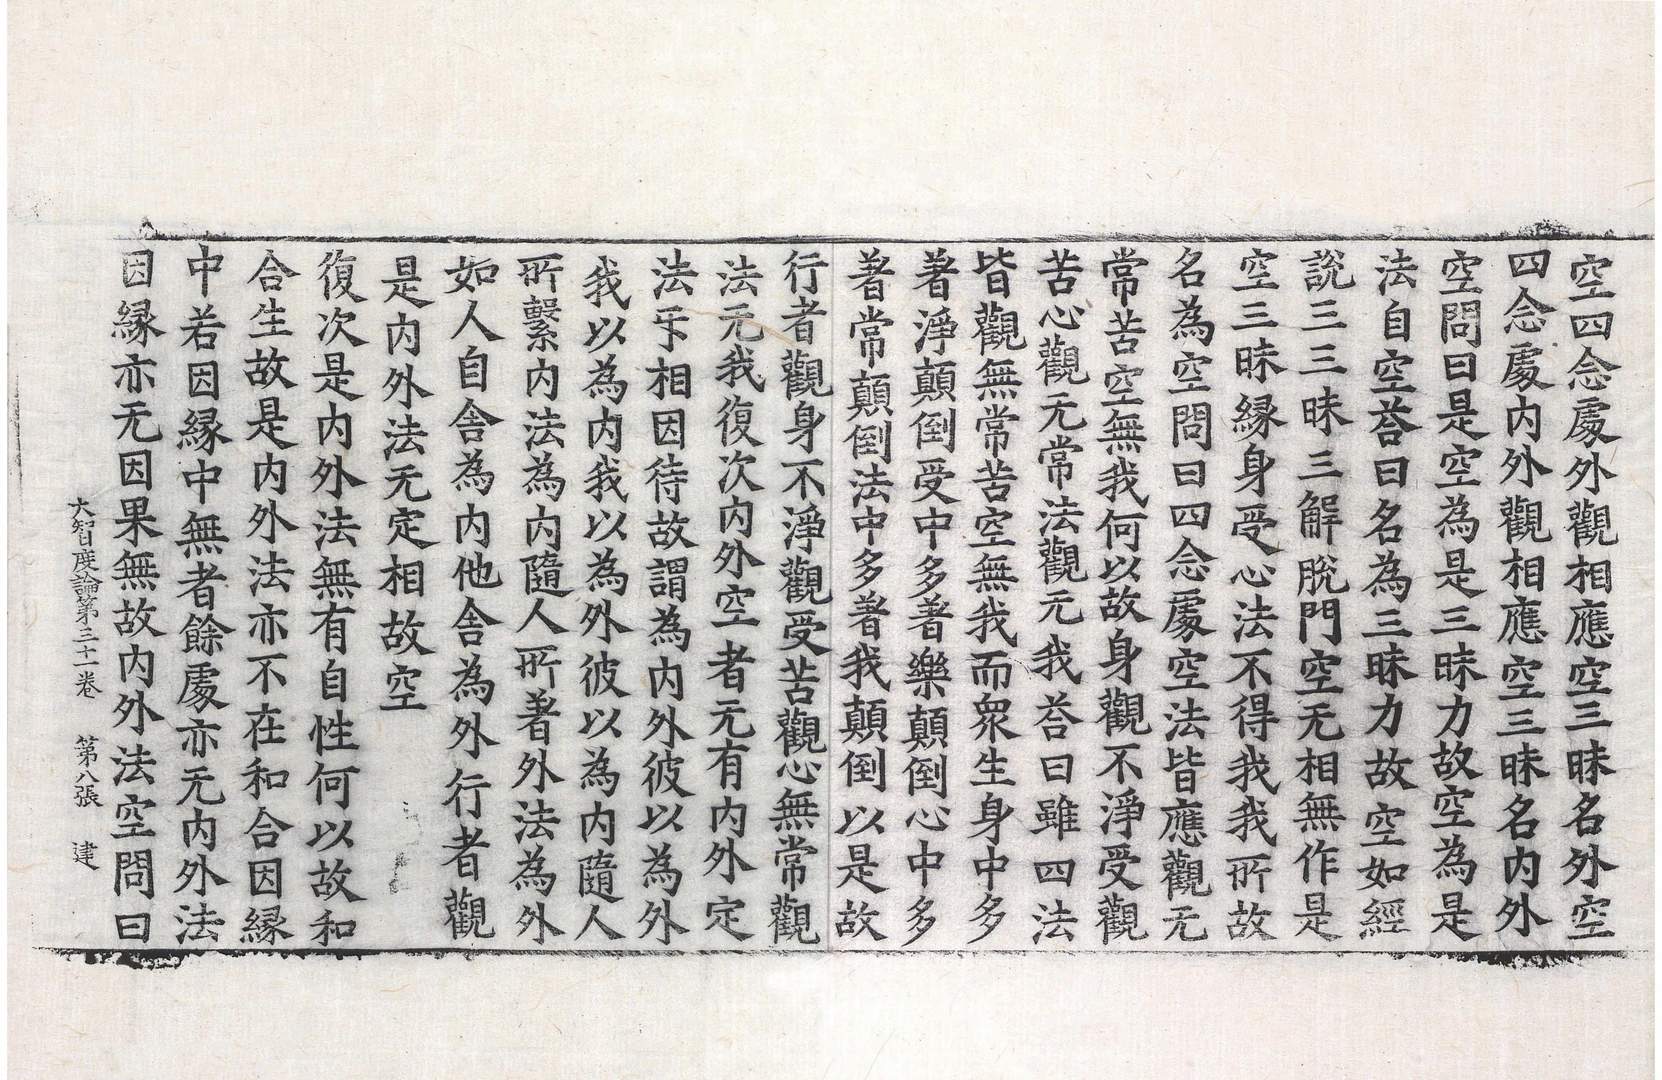 空四念處外觀相應空三昧名外空
四念處內外觀相應空三昧名內外
空問曰是空為是三昧力故空為是
法自空荅曰名為三昧力故空如經
說三三昧三解脫門空无相無作是
空三昧緣身受心法不得我我所故
名為空問曰四念處空法皆應觀无
常苦空無我何以故身觀不淨受觀
苦心觀无常法觀无我荅曰雖四法
皆觀無常苦空無我而眾生身中多
著淨顛倒受中多著樂顛倒心中多
著常顛倒法中多著我顛倒以是故
行者觀身不淨觀受苦觀心無常觀
法无我復次內外空者无有內外定
法㸦相因待故謂為內外彼以為外
我以為內我以為外彼以為內隨人
所繫內法為內隨人所著外法為外
如人自舍為內他舍為外行者觀
是內外法无定相故空
復次是內外法無有自性何以故和
合生故是內外法亦不在和合因緣
中若因緣中無者餘處亦无內外法
因緣亦无因果無故內外法空問曰
大智度論第三十一卷 第八張 建